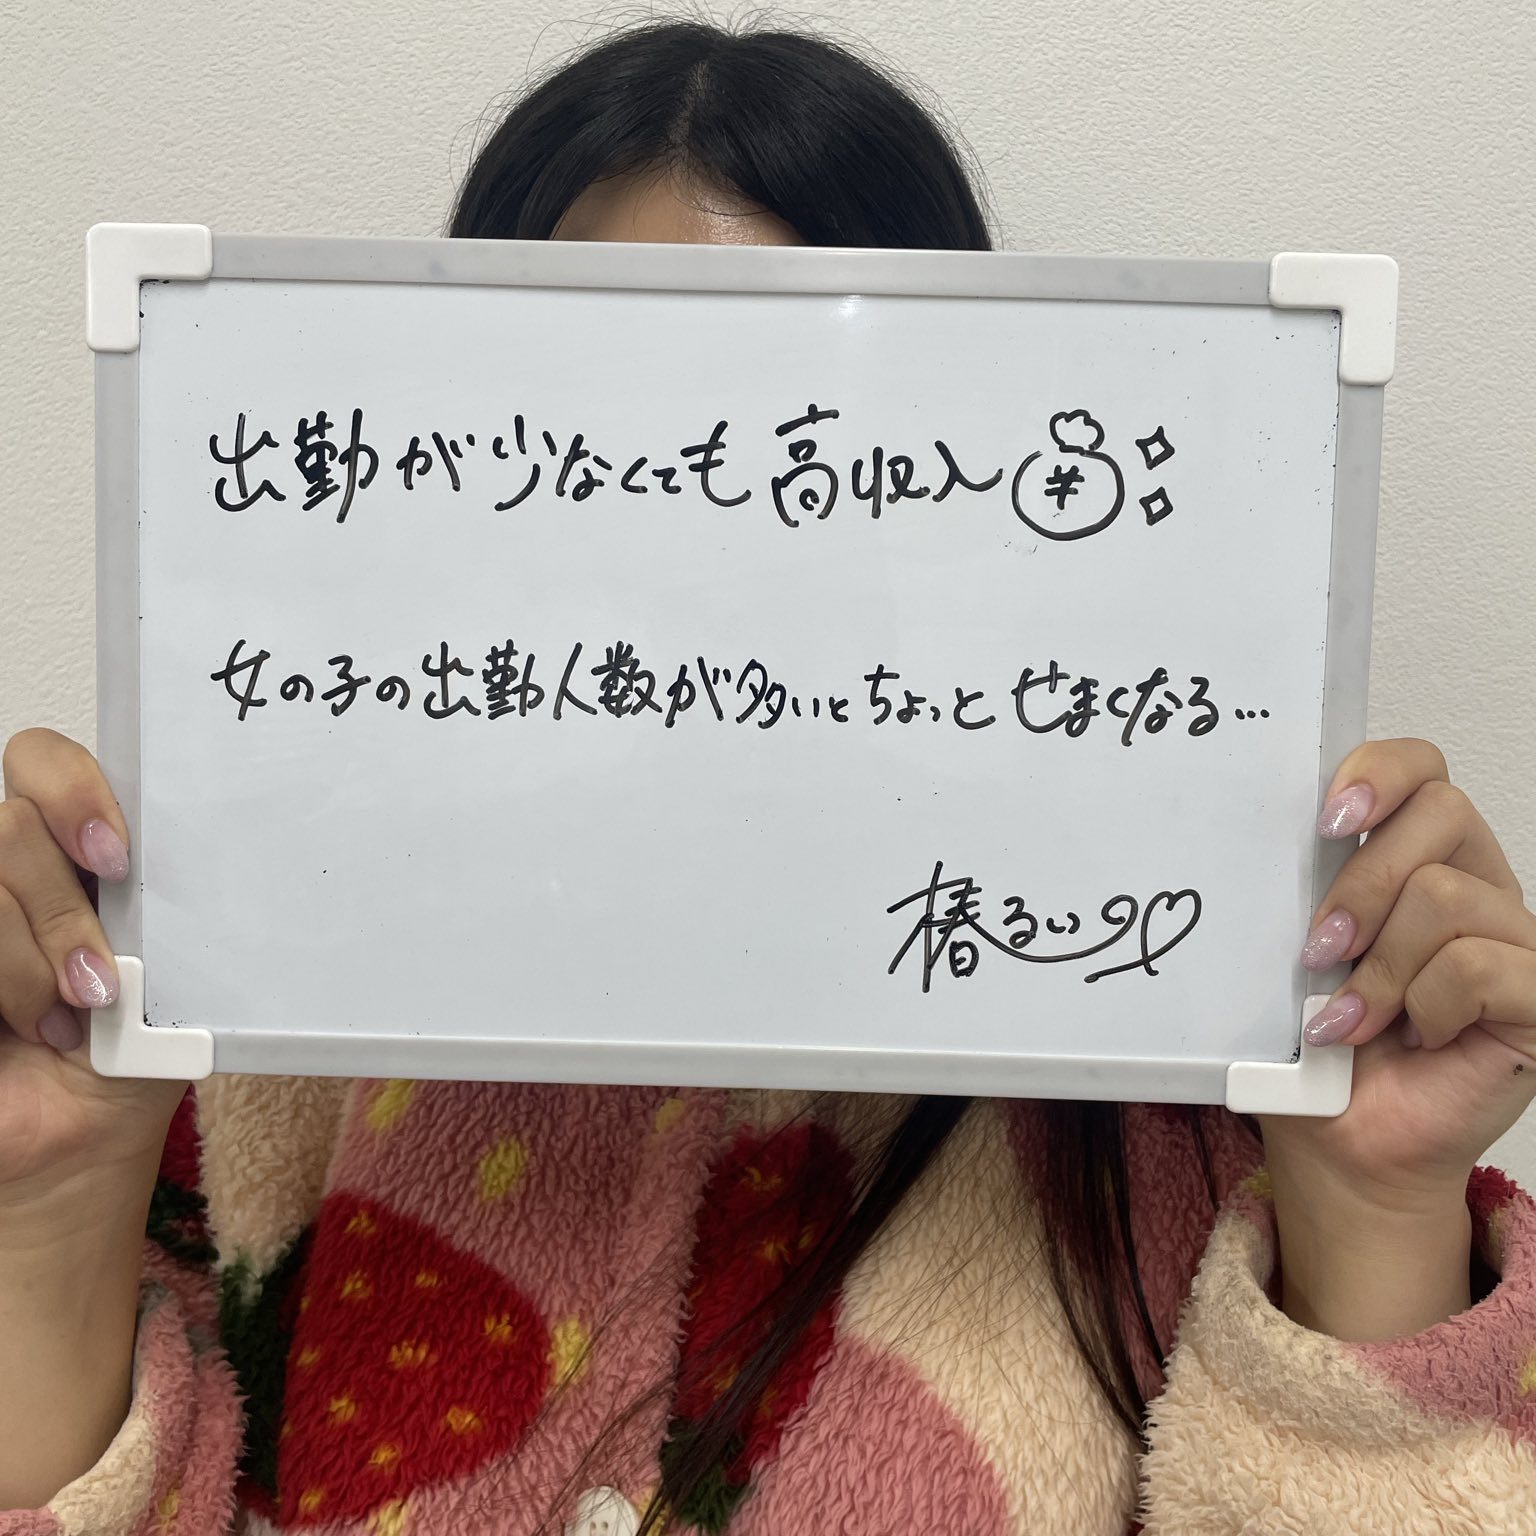 出勤が少なくても高収入
女の子の出勤人数が多いとちょっとせまくなる…
椿るい♡